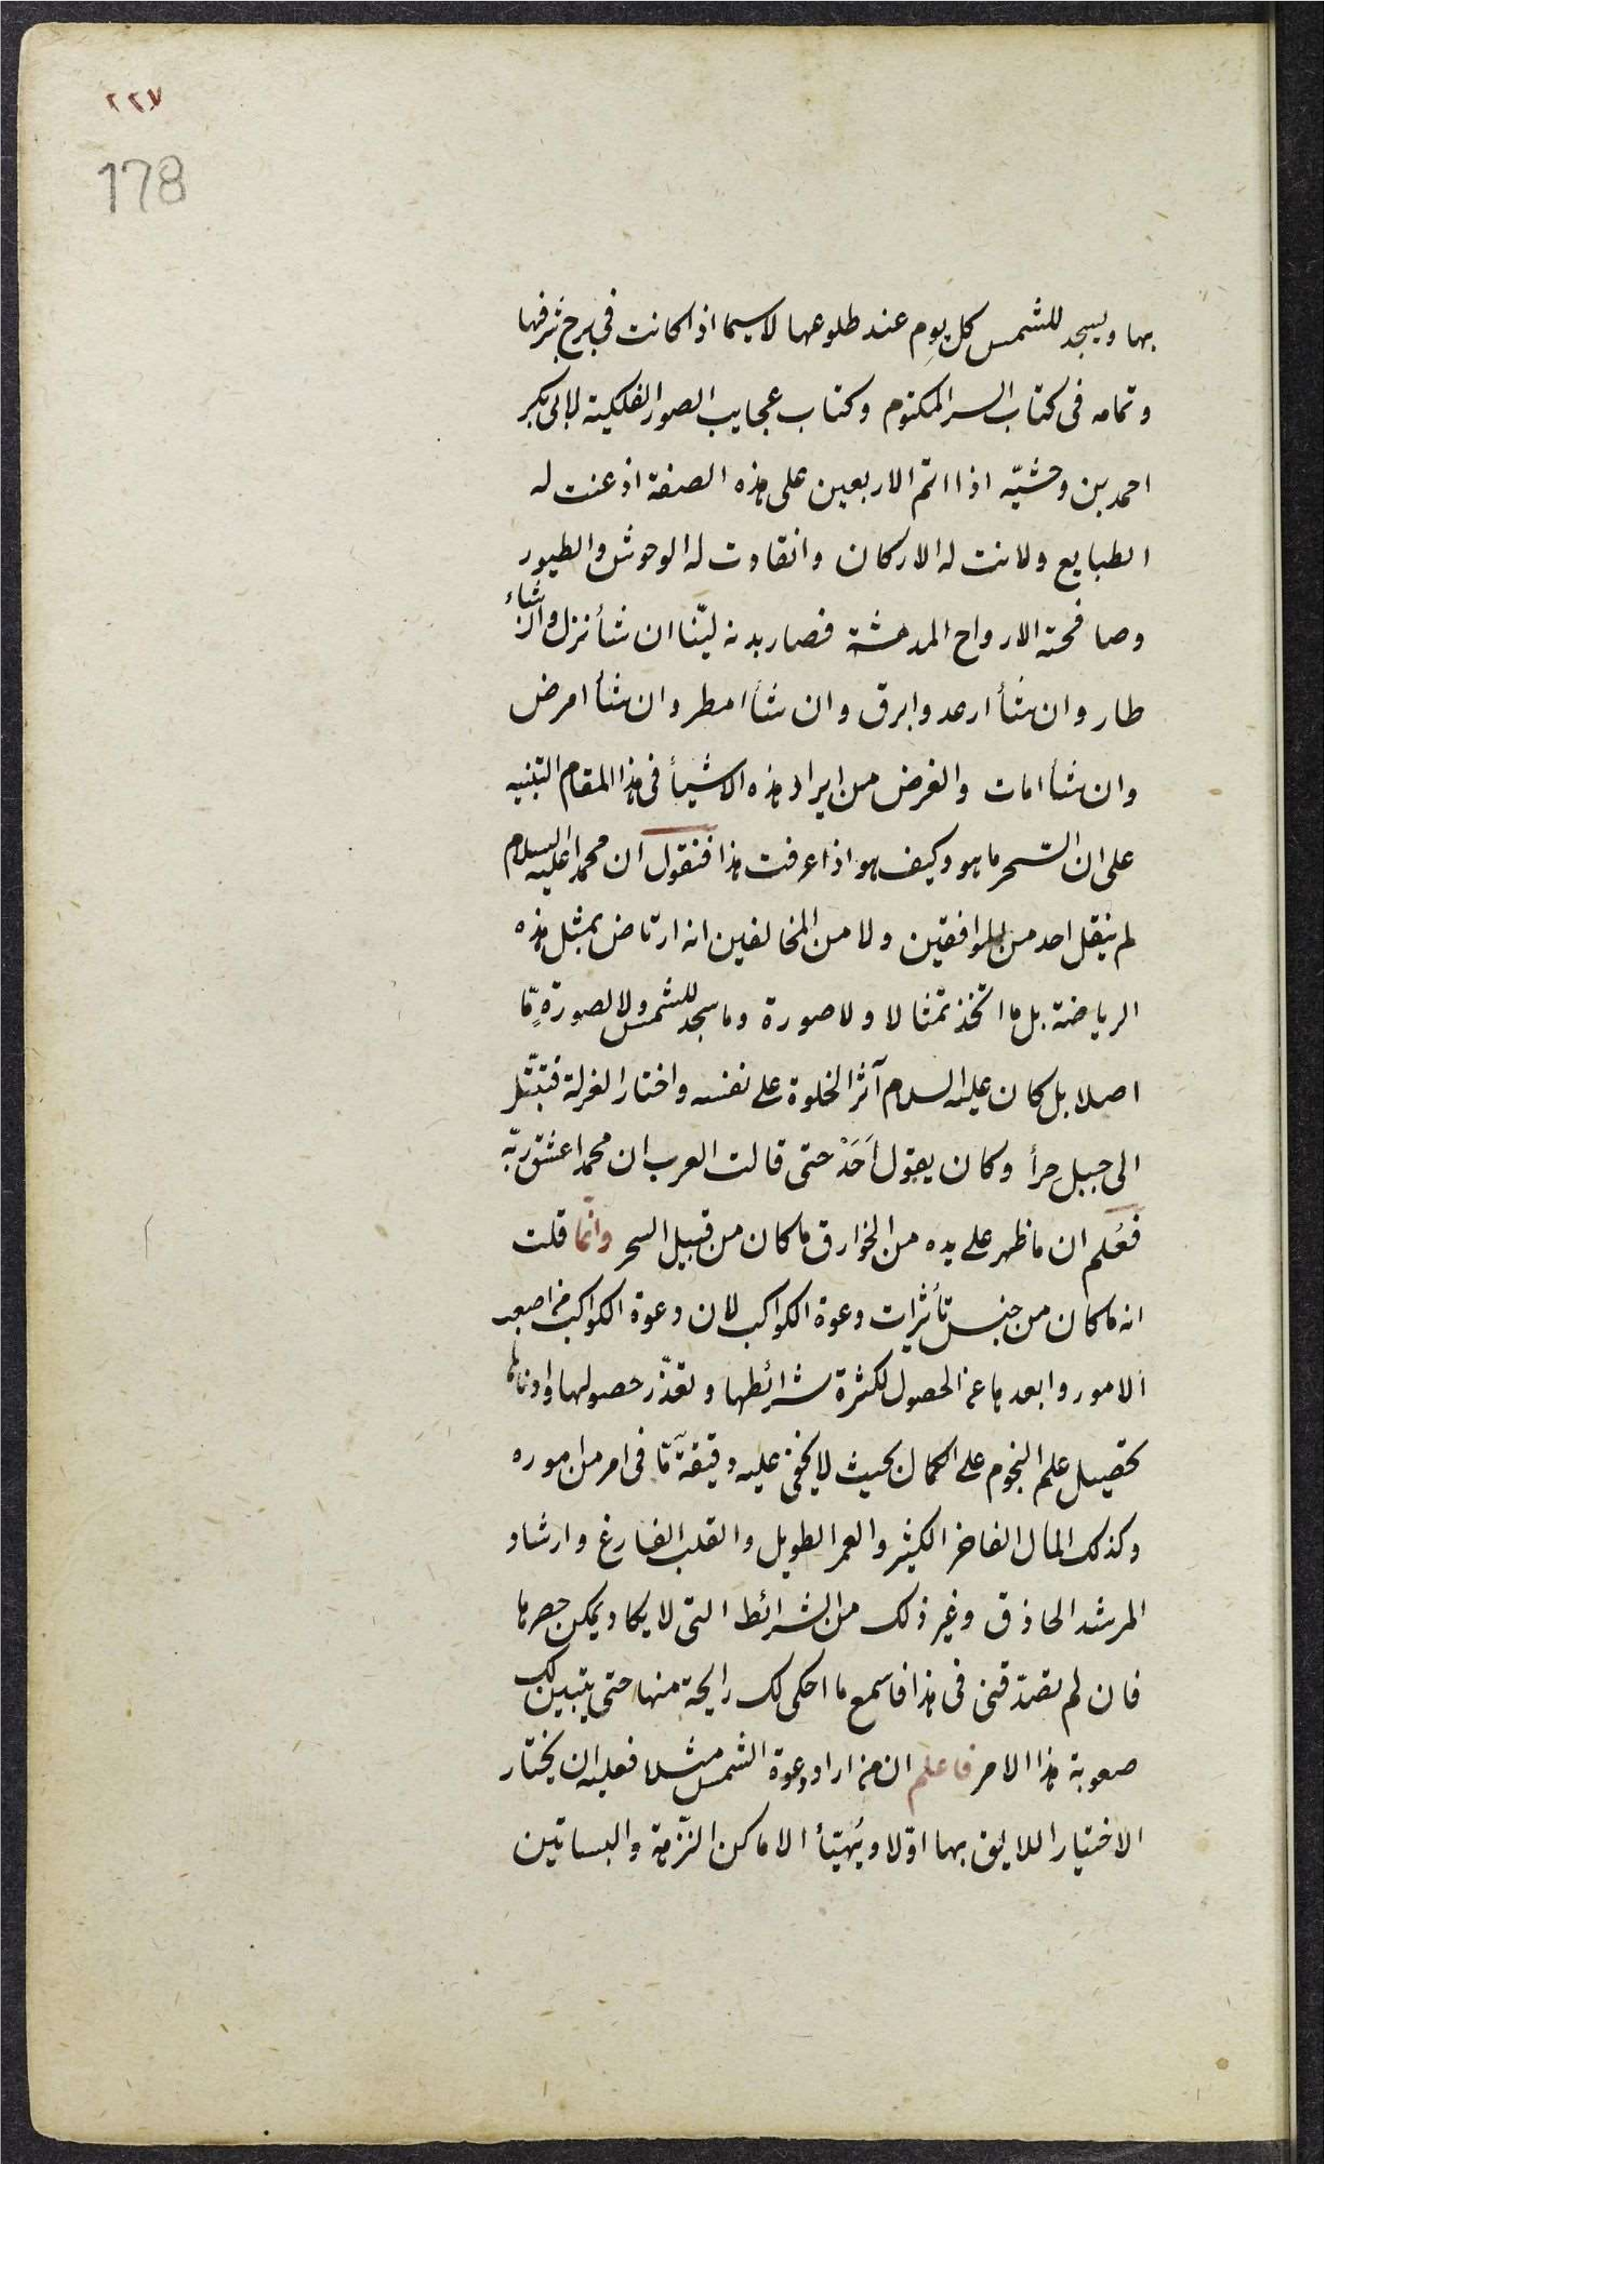 ٢٢٧
178
بها ويسجد للشمس كل يوم عند طلوعها لاسيما اذا كانت فى برج شرفها
وتمامه فى كتاب السر المكتوم وكتاب عجايب الصور الفلكية لابى بكر
احمد بن وحشيّه اذا اتم الاربعين على هذه الصفة اذعنت له
الطبايع ولانت له الاركان وانقادت له الوحوش والطيور
وصافحته الارواح المدهشة فصار بدنه ليّنا ان شأ نزل وان شاء
طار وان شأ ارعد وابرق وان شأ امطر وان شأ امرض
وان شأ امات والغرض من ايراد هذه الاشيأ فى هذا المقام التنبيه
على ان السّحر ما هو وكيف هو اذا عرفت هذا فنقول ان محمدا عليه السلام
لم ينقل احد من الموافقين ولا من المخالفين انه ارتاض بمثل هذه
الرياضة بل ما اتخذ تمثالا ولا صورة وما سجد للشمس ولا لصورةٍ مّا
اصلا بل كان عليه السلام آثر الخلوة على نفسه واختار العزلة فتبتّل
الى جبل حرأ وكان يقول اَحَدْ حتى قالت العرب ان محمدا عشق ربّه
فعُلم ان ما ظهر على يده من الخوارق ما كان من قبيل السحر وانّما قلت
انه ما كان من جنس تأثيرات دعوة الكواكب لان دعوة الكواكب من اصعب
الامور وابعدها عن الحصول لكثرة شرائطها وتعذّر حصولها وادناها
تحصيل علم النجوم على الكمال بحيث لا يخفى عليه دقيقةٌ مّا فى امر من اموره
وكذلك المال الفاخر الكثير والعمر الطويل والقلب الفارغ وارشاد
المرشد الحاذق وغير ذلك من الشرائط التى لا يكاد يمكن حصرها
فان لم تصدّقنى فى هذا فاسمع ما احكى لك رايحة منها حتى يتبين لك
صعوبة هذا الامر فاعلم ان من اراد دعوة الشمس مثلا فعليه ان يختار
الاختيار اللايق بها اوّلا ويُهيّأ الاماكن النّزهة والبساتين